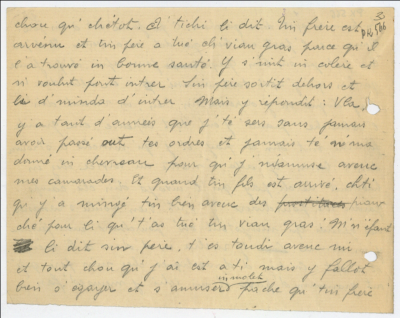 chou qu' ch'étot. A tichi li dit Tin frère est
arvenu et tin père a tué ch'viau gras parce qu'il
l'a trouvé in bonne santé. Y s'mit in colère et
ni voulut point intrer. Sin père sortit dehors et
li d'minda d'intrer Mais y répondit : V'la
y a tant d'anneis que j'té sers sans jamais
avoir passé out tes ordres et jamais té n'ma
donné in chevreau pour qu'j'm'amuse aveuc
mes camarades. Et quand tin fils est arrivé, chti
qu'y a mingé tin ben aveuc des
ché pour li qu't'as tué tin viau gras ! M'n'éfant
li dit sin père, t'es toudi aveuc mi
et tout chou qu' j'ai est a ti mais y fallot
in molet
ben s'égayer et s'amuser pache qu'tin frère